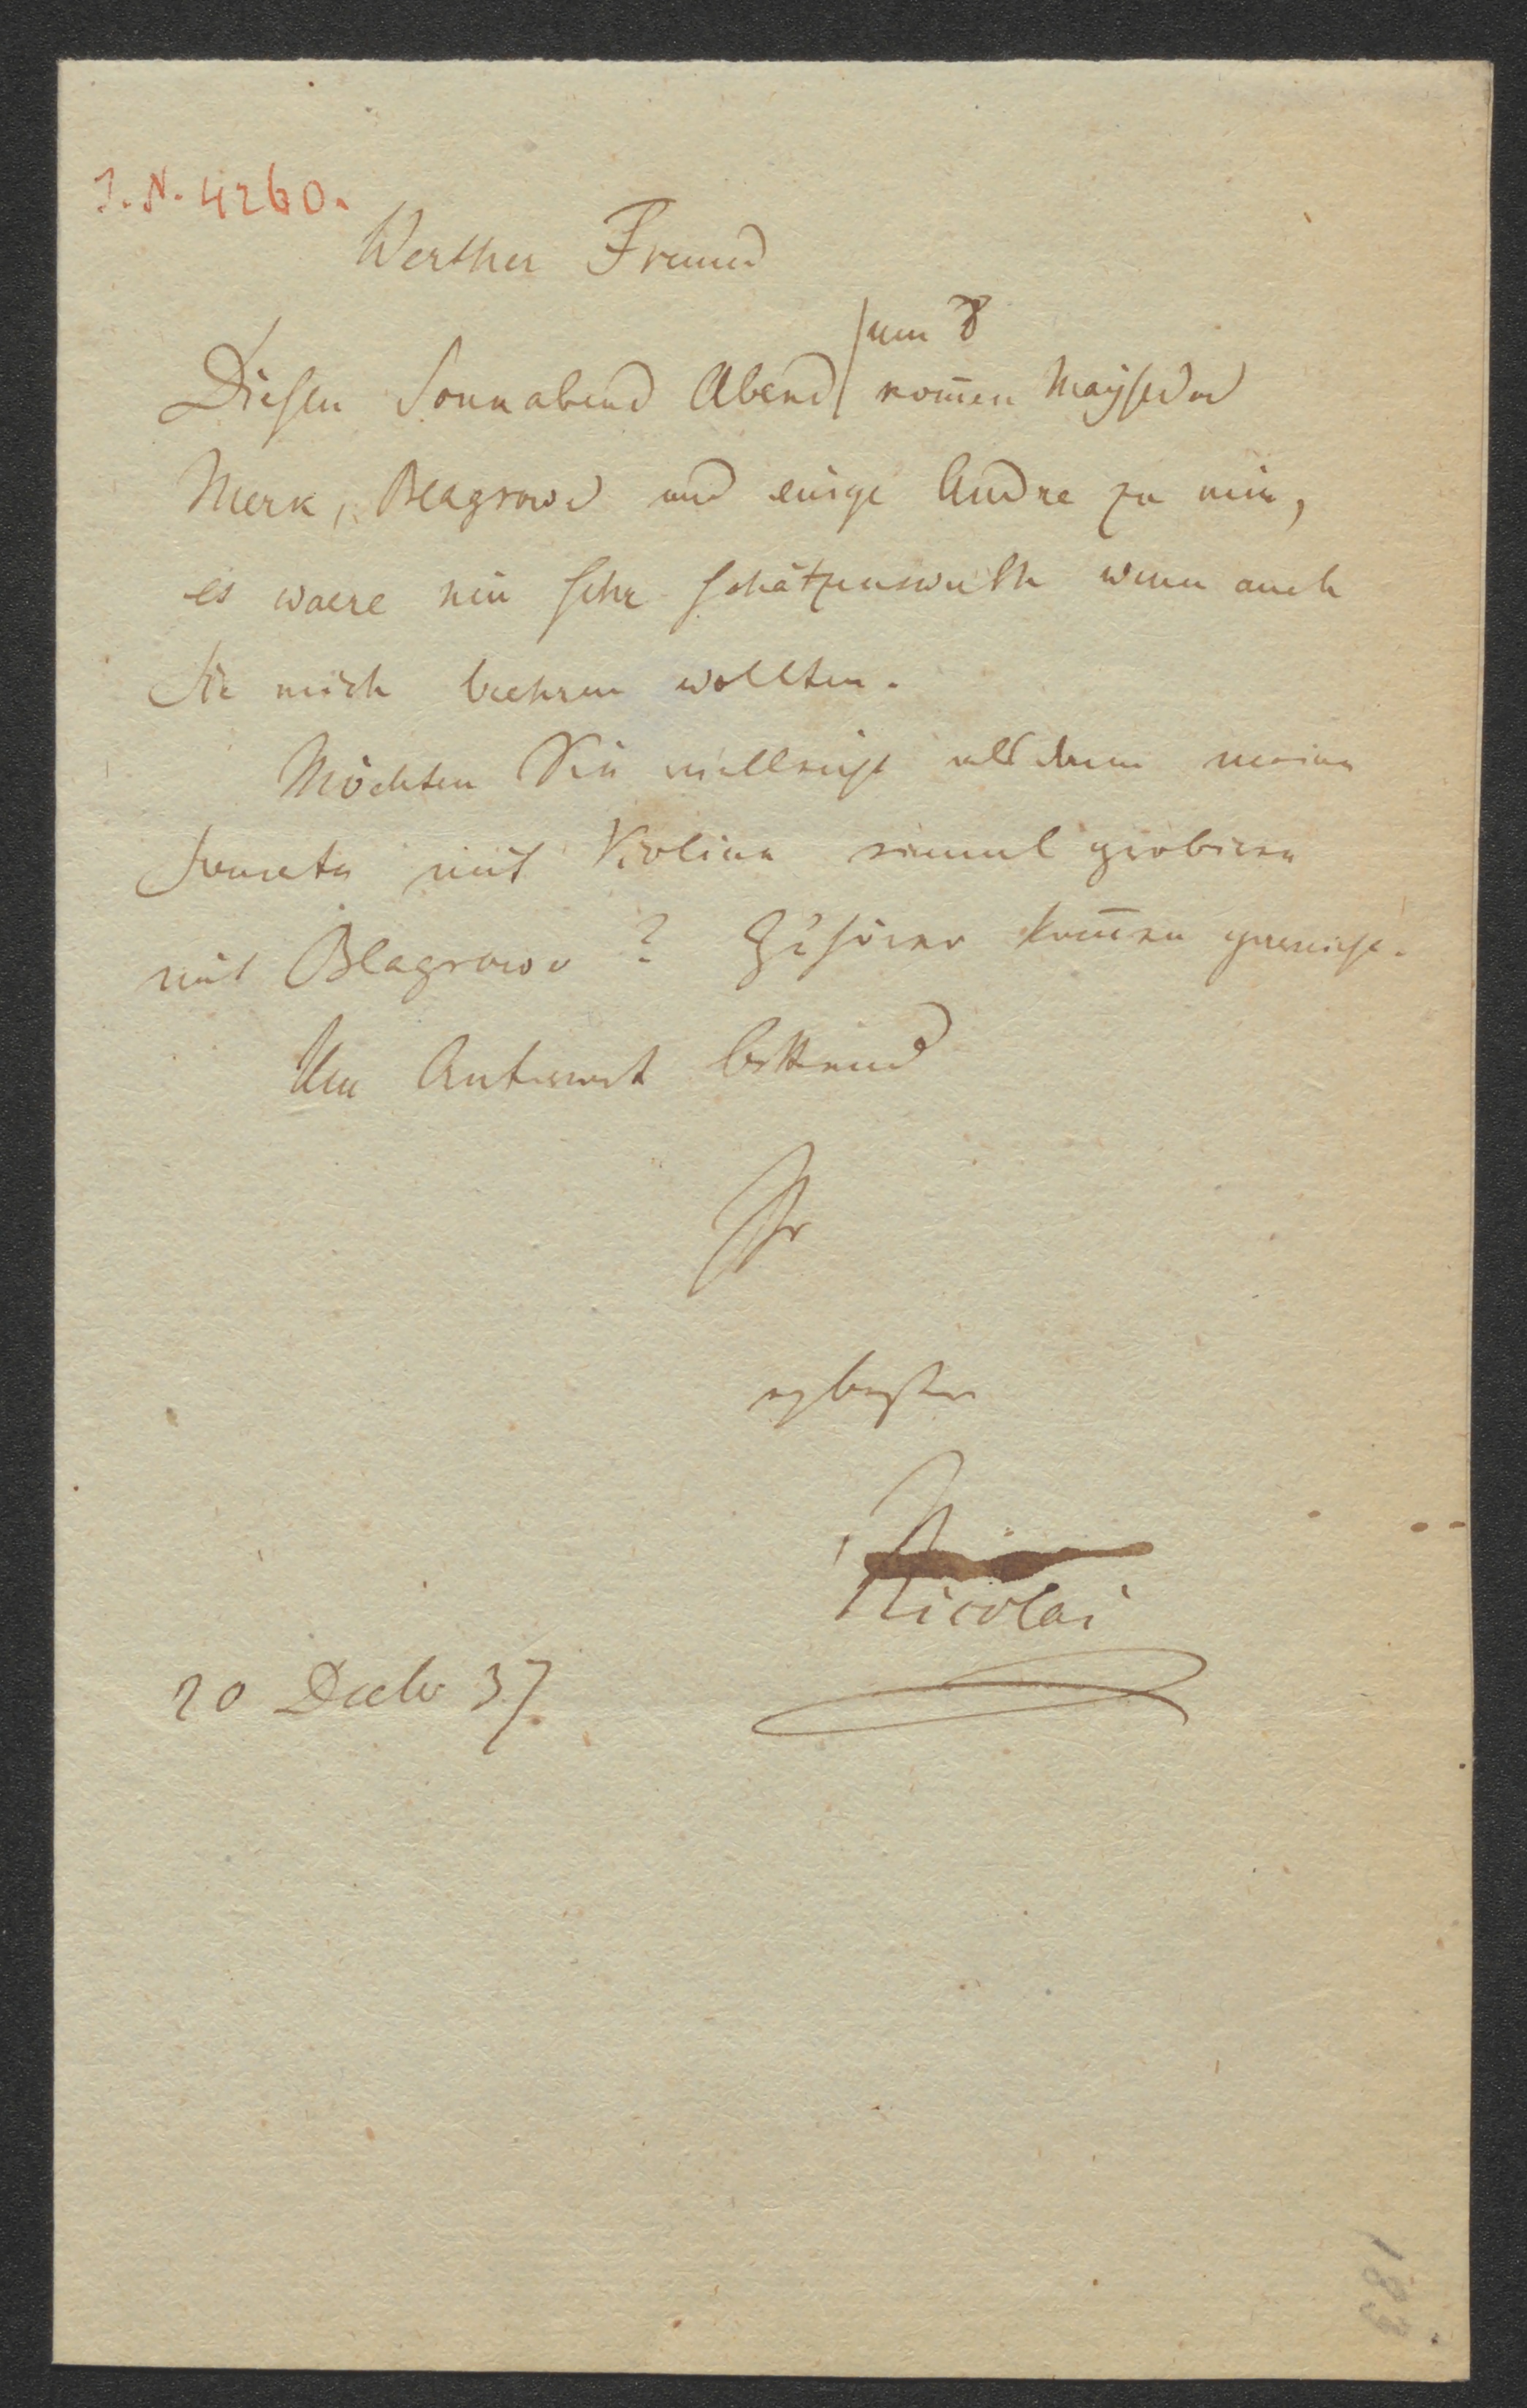 I. N. 4260.
Werther Freund
um 8
Diesen Sonnabend Abend kom̅en Mayseder
Merk, Blagrowe und einige Andre zu mir,
es waere mir sehr schätzenswerth wenn auch
Sie mich beehren wollten.
Möchten Sie vielleicht alsdann meine
Sonate mit Violine einmal probiren
mit Blagrowe? Zuhörer kom̅en garnicht.
Um Antwort bittend
Ihr
ergbster
Nicolai
20 Decbr 37
183